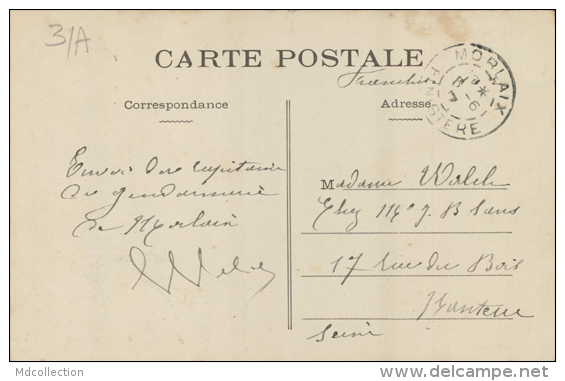 31A
CARTE POSTALE
MORLAIX
FINISTERE
Franchise
Correspondance
Adresse
Envoi du capitaine
de gendarmerie
de Morlaix
Madame Walch
Chez Mme J. B
17 rue du Bois
Nanterre
Seine
Mdcollection
www.delcampe.net